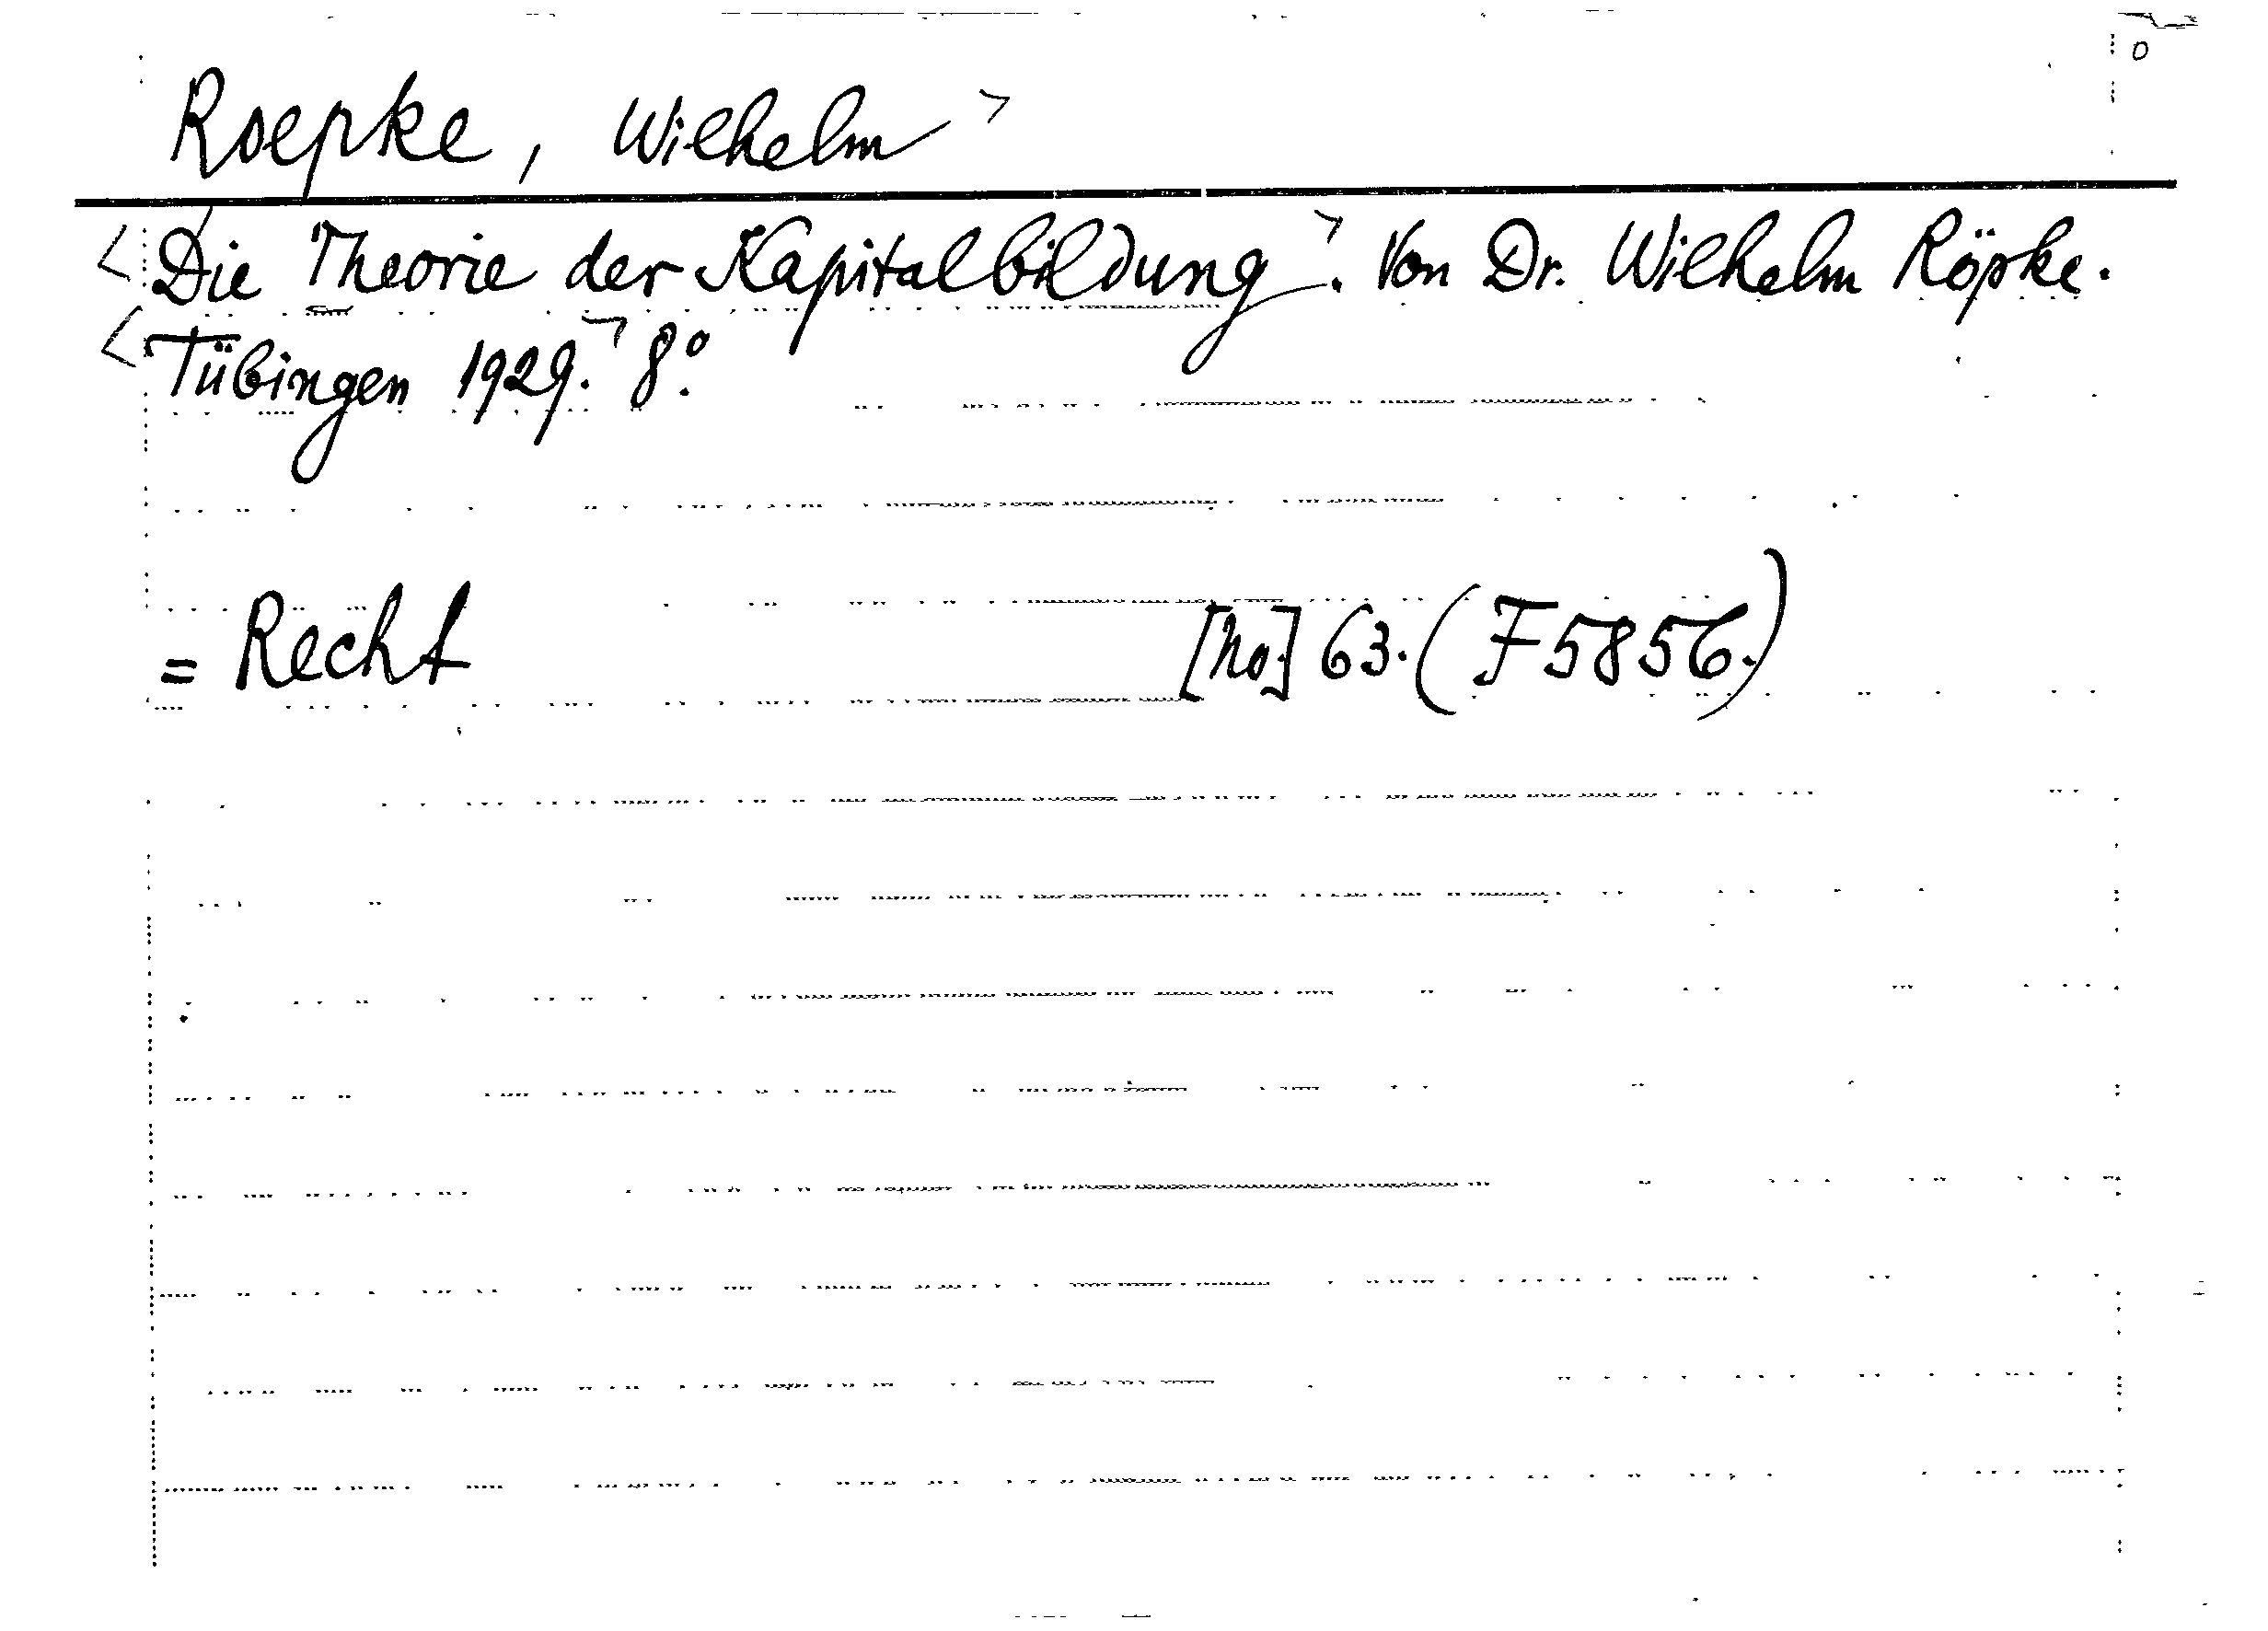 Roepke, Wilhelm
Die Theorie der Kapitalbildung. Von Dr. Wilhelm Röpke.
Tübingen 1929. 8°.
= Recht [No.] 63. (F 5856.)